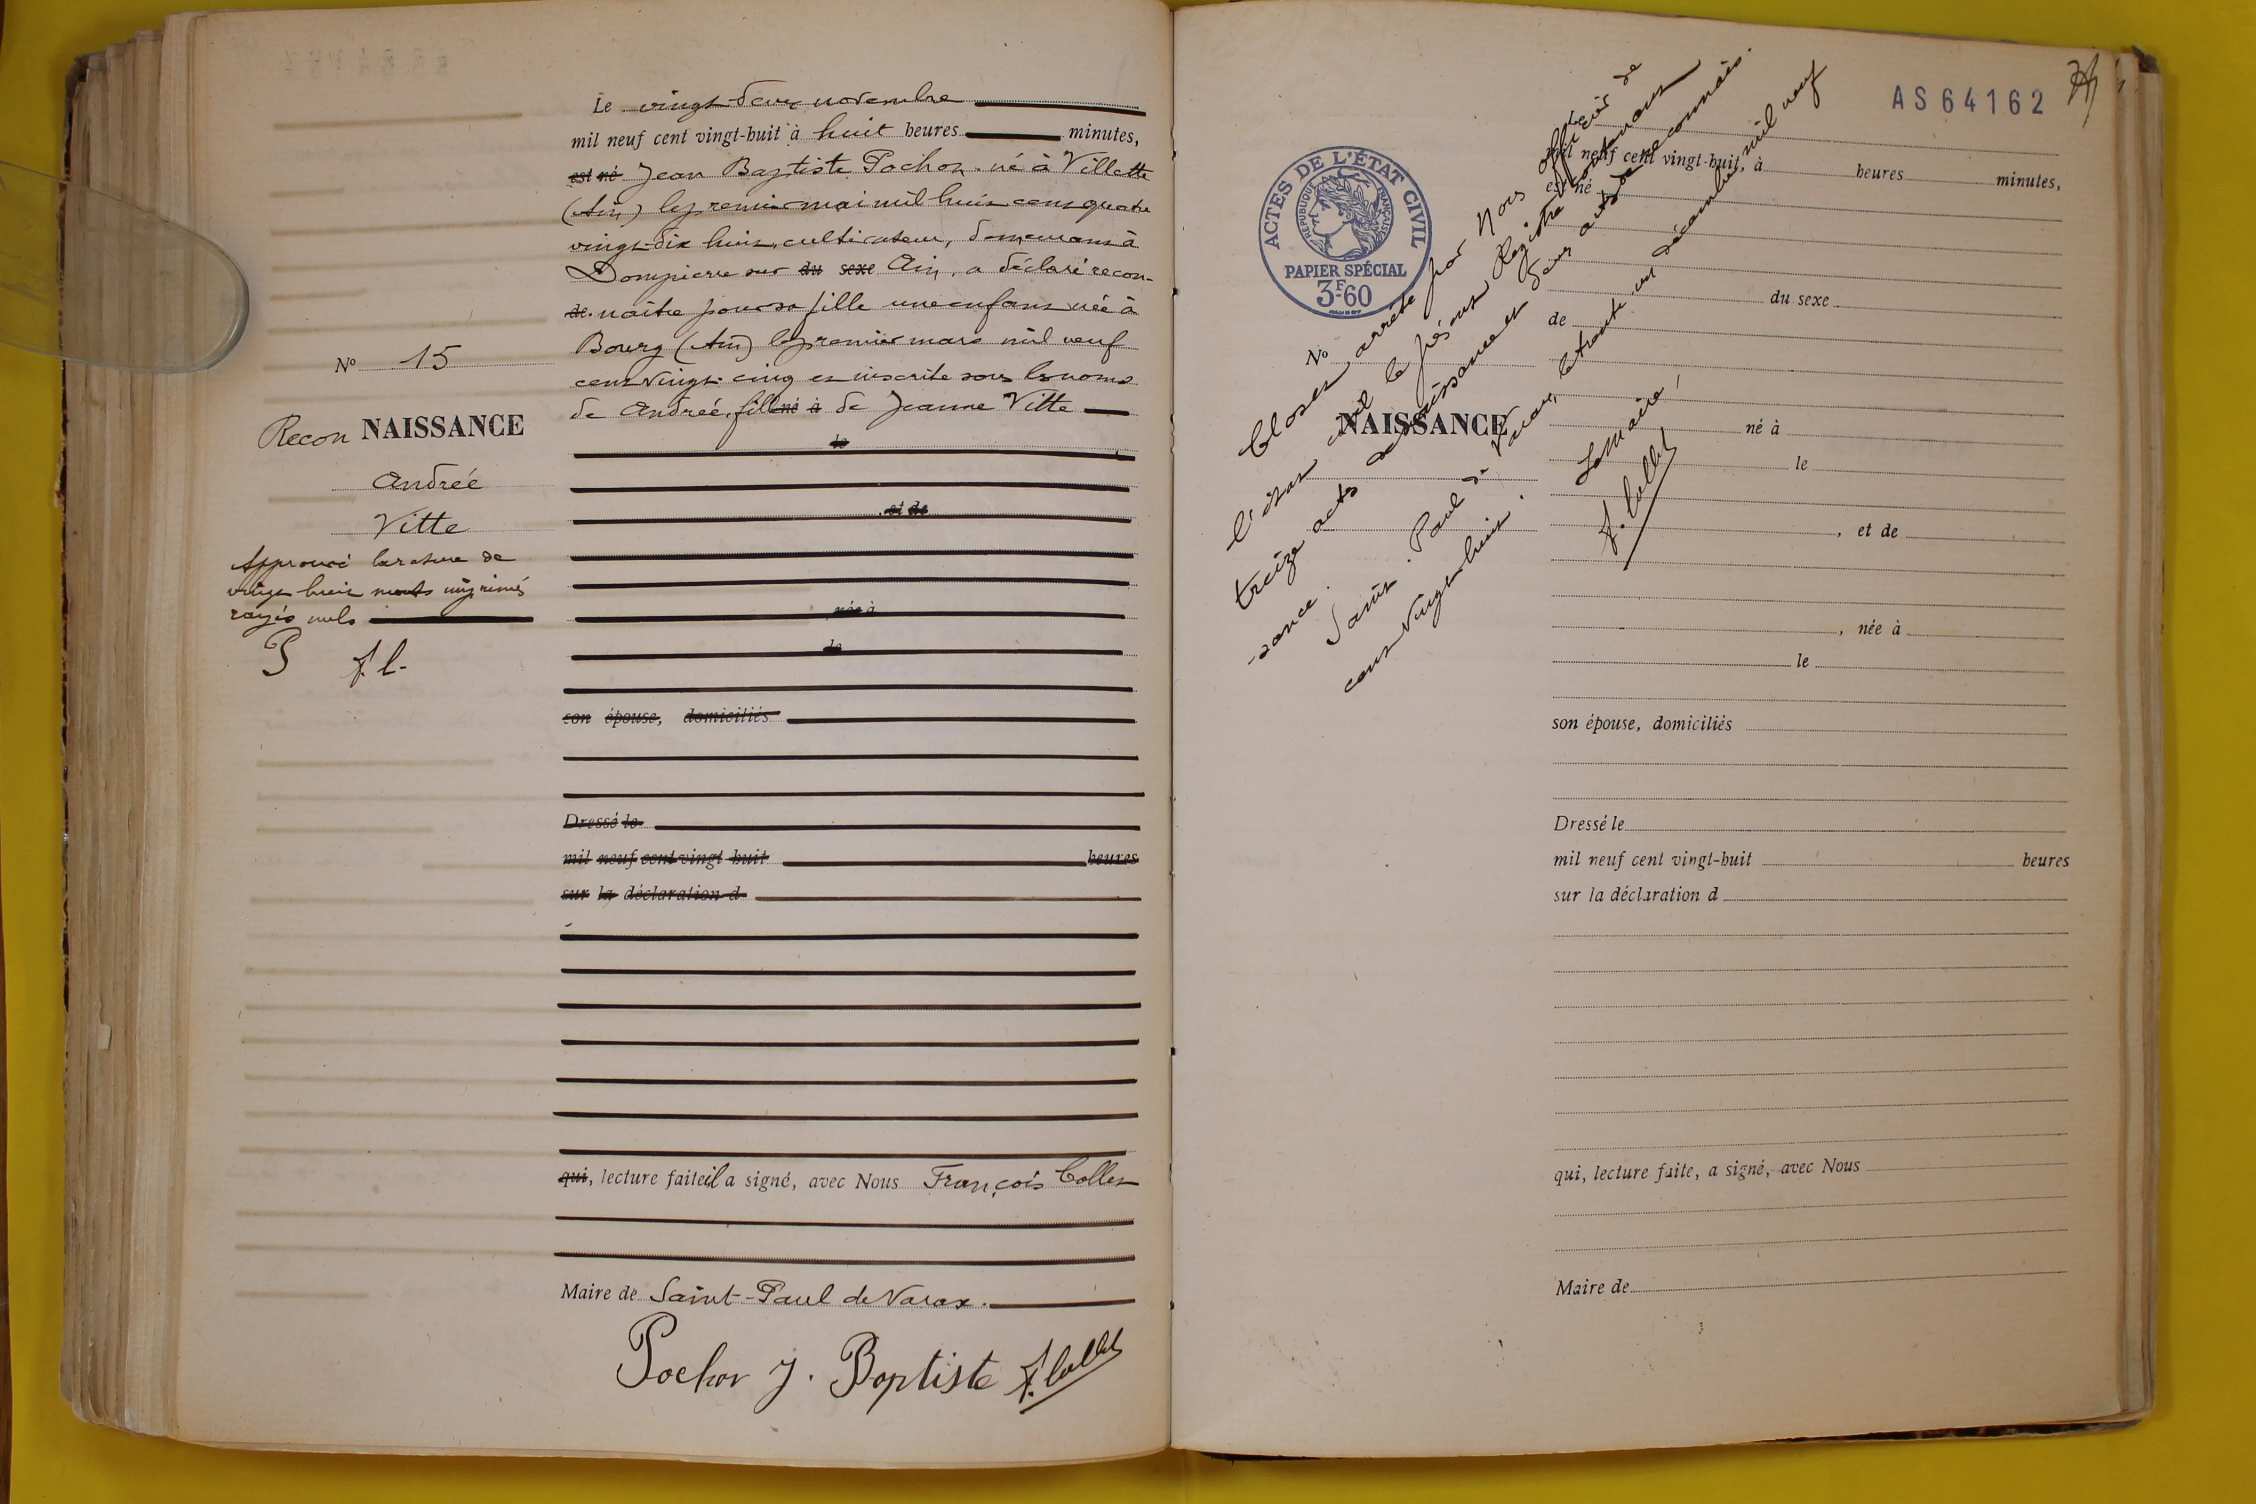 Le vingt-deux novembre
mil neuf cent vingt-huit à huit heures minutes,
est né Jean Baptiste Pochon né à Villette
(Ain) le premier mai mil huit cent quatre
vingt-dix huit, cultivateur, demeurant à
Dompierre sur du sexe Ain, a déclaré recon-
de naître pour sa fille une enfant née à
Bourg (Ain) le premier mars mil neuf
cent vingt-cinq et inscrite sous les noms
de Andrée, fille né à de Jeanne Vitte
le
et de
née à
le
son épouse, domiciliés
Dressé le
mil neuf cent vingt huit heures
sur la déclaration d
qui, lecture faite il a signé, avec Nous François Collet
Maire de Saint-Paul de Varax.
Pochon J. Baptiste F. Collet
No 15
Recon NAISSANCE
Andrée
Vitte
Approuvé la rature de
vingt huit mots imprimés
rayés nuls
P F. C.
AS64162
ACTES DE L'ÉTAT CIVIL
RÉPUBLIQUE FRANÇAISE
PAPIER SPÉCIAL
3F.60
No
NAISSANCE
Closet arrêté par Nous officier de
l'état civil le présent Registre contenant
treize actes de naissance et deux actes de reconnais-
-sance.
Saint-Paul de Varax, le trente un décembre mil neuf
cent vingt huit.
Le Maire,
F. Collet
Le
mil neuf cent vingt-huit, à heures minutes,
est né
du sexe
de
né à
le
, et de
, née à
le
son épouse, domiciliés
Dressé le
mil neuf cent vingt-huit heures
sur la déclaration d
qui, lecture faite, a signé, avec Nous
Maire de